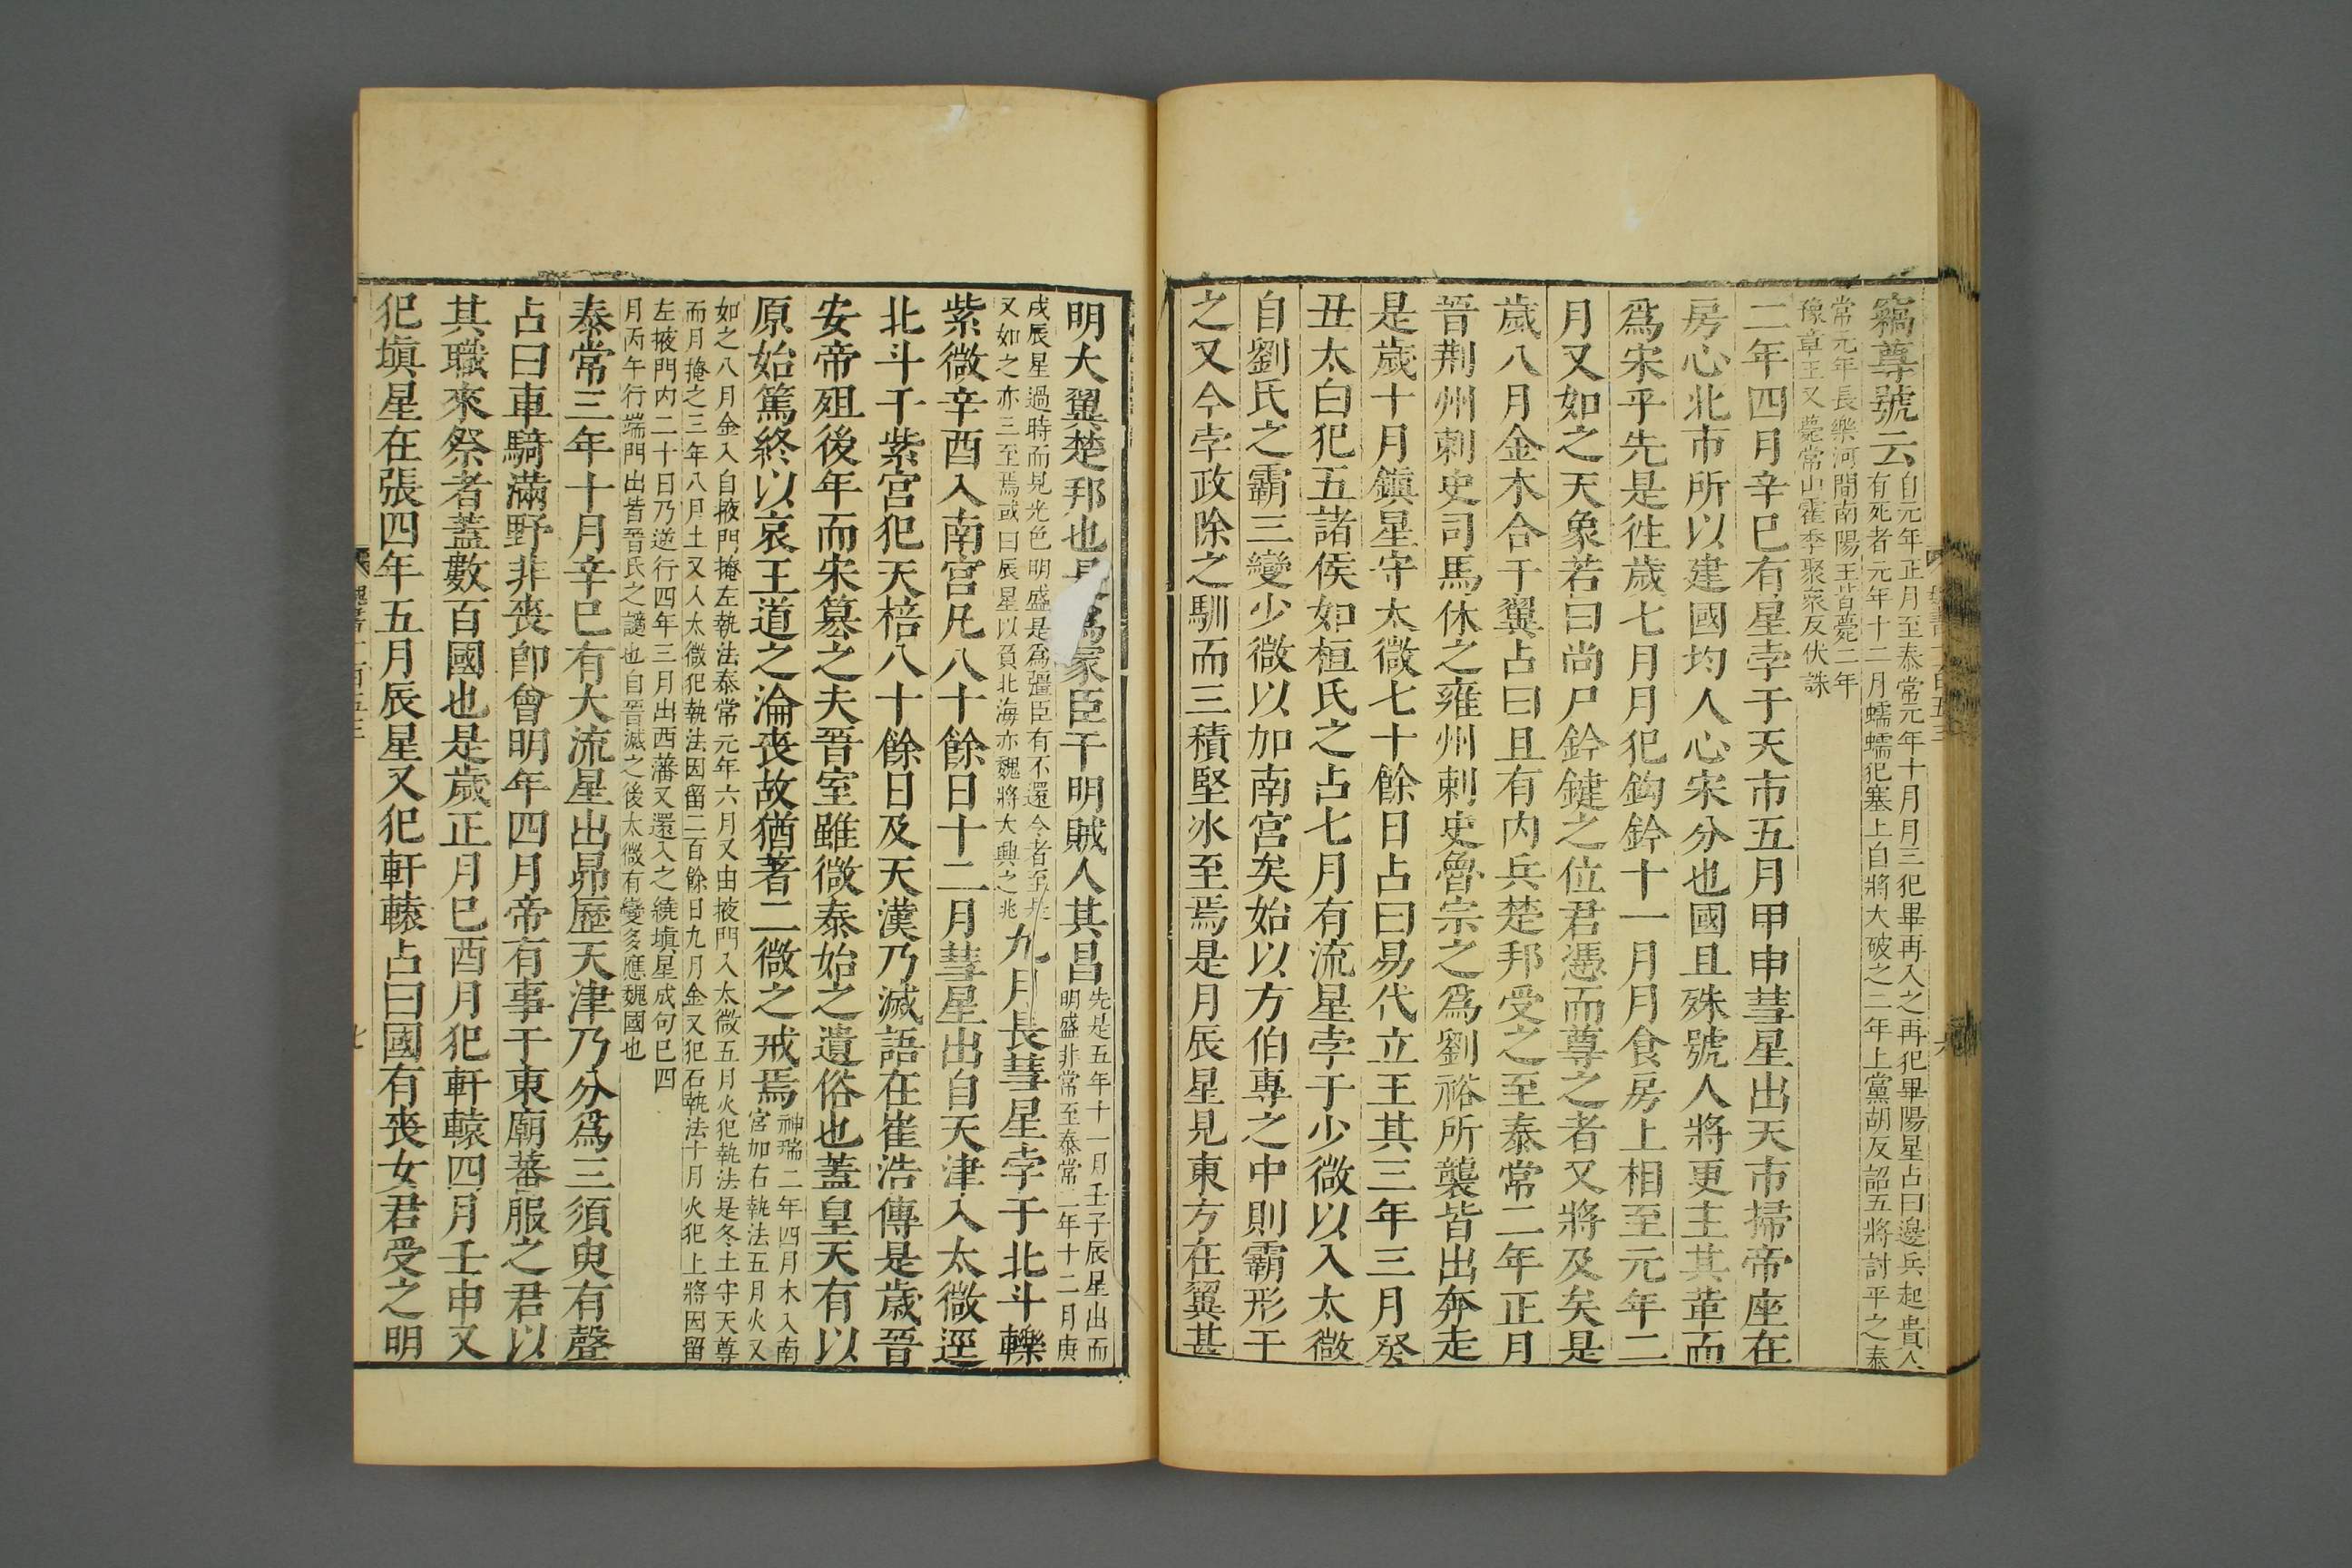 竊尊號云自元年正月至泰常元年十月月三犯畢再入之再犯畢陽星占曰邊兵起貴人
有死者元年十二月蠕蠕犯塞上自將大破之二年上黨胡反詔五將討平之泰
常元年長樂河間南陽王皆薨二年
豫章王又薨常山霍季聚衆反伏誅
二年四月辛巳有星孛于天市五月甲申彗星出天市掃帝座在
房心北市所以建國均人心宋分也國且殊號人將更主其革而
爲宋乎先是徃歲七月月犯鈎鈐十一月月食房上相至元年二
月又如之天象若曰尚尸鈐鍵之位君憑而尊之者又將及矣是
歲八月金木合于翼占曰且有内兵楚邦受之至泰常二年正月
晉荆州刺史司馬休之雍州刺史魯宗之爲劉裕所襲皆出奔走
是歲十月鎮星守太微七十餘日占曰易代立王其三年三月癸
丑太白犯五諸侯如桓氏之占七月有流星孛于少微以入太微
自劉氏之霸三變少微以加南宮矣始以方伯專之中則霸形干
之又今孛政除之馴而三積堅冰至焉是月辰星見東方在翼甚
明大翼楚邦也是爲冢臣干明賊人其昌先是五年十一月壬子辰星出而
明盛非常至泰常二年十二月庚
戌辰星過時而見光色明盛是爲彊臣有不還令者至是
又如之亦三至焉或曰辰星以負北海亦魏將大興之兆九月長彗星孛于北斗轢
紫微辛酉入南宮凡八十餘日十二月彗星出自天津入太微逕
北斗干紫宮犯天棓八十餘日及天漢乃滅語在崔浩傳是歲晉
安帝殂後年而宋簒之夫晉室雖微泰始之遺俗也蓋皇天有以
原始篤終以哀王道之淪喪故猶著二微之戒焉神瑞二年四月木入南
宮加右執法五月火又
如之八月金入自掖門掩左執法泰常元年六月又由掖門入太微五月火犯執法是冬土守天尊
而月掩之三年八月土又入太微犯執法因留二百餘日九月金又犯右執法十月火犯上將因留
左掖門内二十日乃逆行四年三月出西蕃又還入之繞填星成句巳四
月丙午行端門出皆晉氏之謫也自晉滅之後太微有變多應魏國也
泰常三年十月辛巳有大流星出昴歷天津乃分爲三須臾有聲
占曰車騎滿野非喪即會明年四月帝有事于東廟蕃服之君以
其職來祭者蓋數百國也是歲正月巳酉月犯軒轅四月壬申又
犯塡星在張四年五月辰星又犯軒轅占曰國有喪女君受之明
七